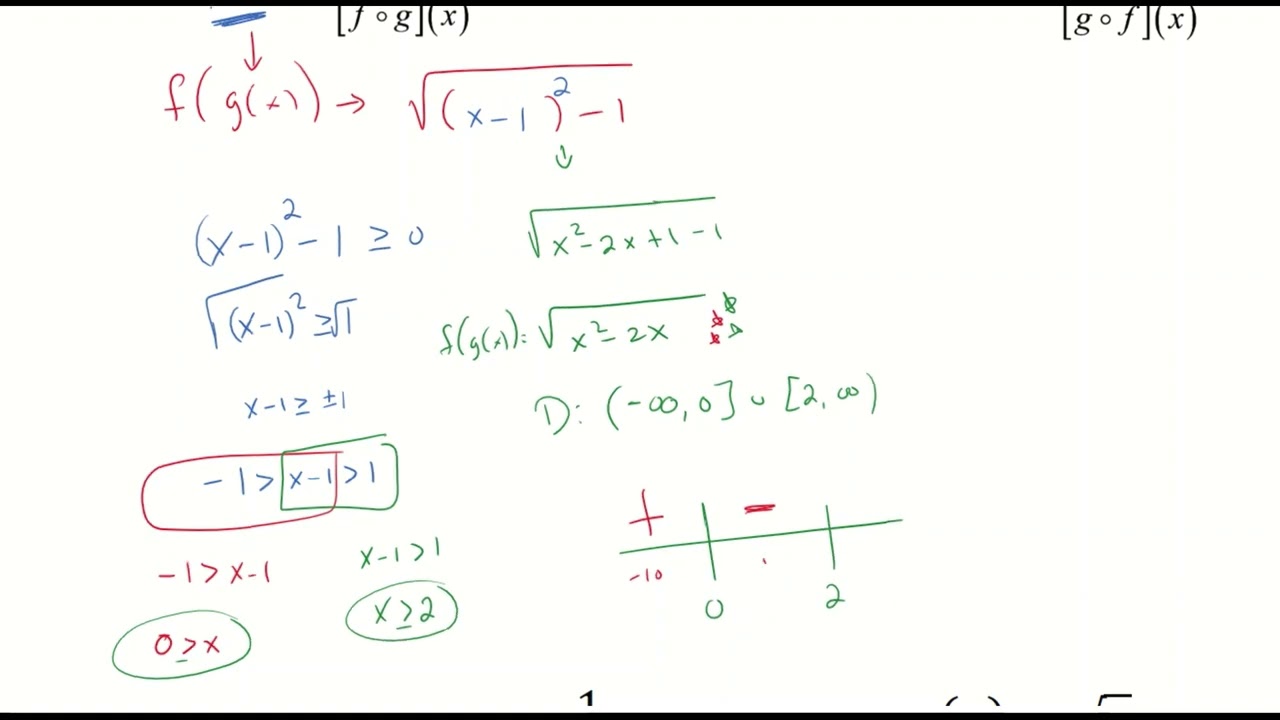 [f ∘ g](x)
[g ∘ f](x)
f(g(x)) → √((x-1)² - 1)
(x-1)² - 1 ≥ 0
√(x² - 2x + 1 - 1)
√(x-1)² ≥ √1
f(g(x)) = √(x² - 2x)
x-1 ≥ ±1
D: (-∞, 0] ∪ [2, ∞)
-1 > x-1 > 1
+ -
-1 > x-1
x-1 > 1
-10
0 2
x ≥ 2
0 ≥ x
1